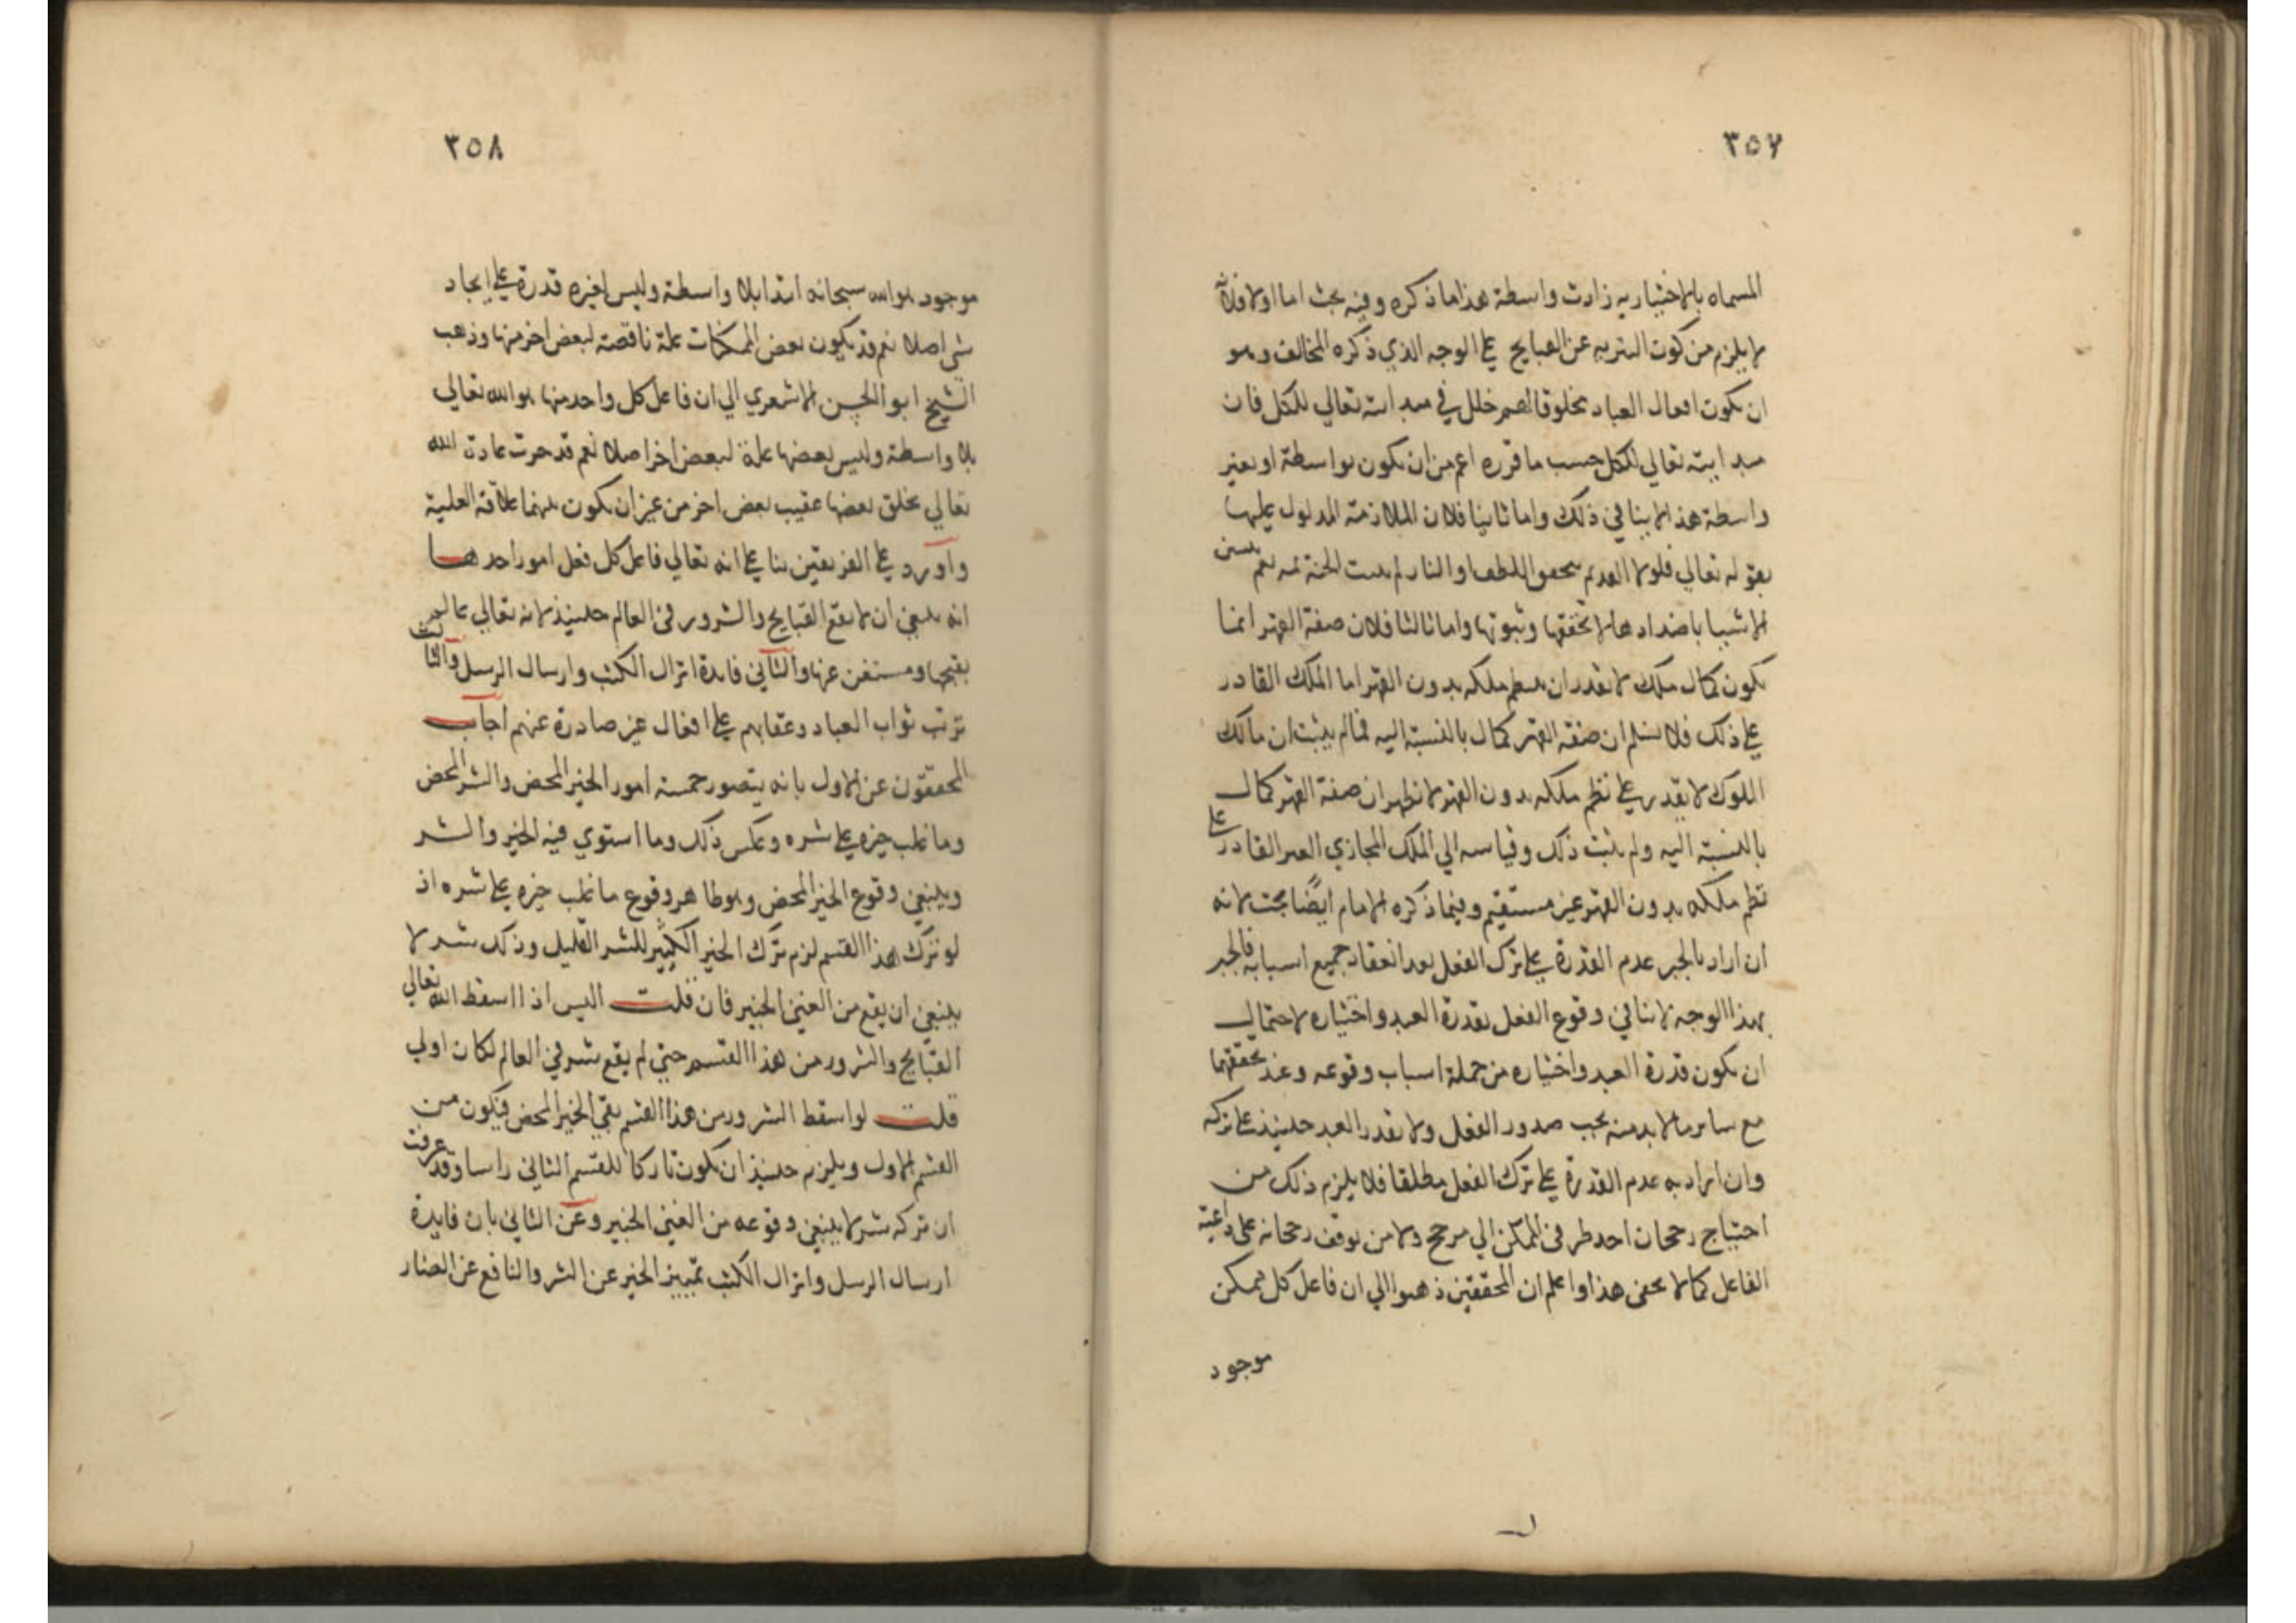 ٣٥٧
المسماه بالاختياريه زادت واسطة هذا ما ذكره وفيه بحث اما اولا فلانه
لا يلزم من كون التنزيه عن القبايح علي الوجه الذي ذكره المخالف وهو
ان يكون افعال العباد مخلوقا لهم خلل في مبداييته تعالي للكل فان
مبداييته تعالي للكل حسب ما قرره اعم من ان يكون بواسطة او بغير
واسطة هذا لا ينافي ذلك واما ثانيا فلان الملازمة المدلول عليها
بقوله تعالي فلولا لم يتحقق اللطف والنار لم الجنة نعم
الاشيا باضدادها لا تحققها وثبوتها واما ثالثا فلان صفة القهر انما
يكون كمال ملك لا يقدر ان ينظم ملكه بدون القهر اما الملك القادر
علي ذلك فلا نسلم ان صفة القهر كمال بالنسبة اليه فمالم يثبت ان مالك
الملوك لا يقدر علي نظم ملكه بدون القهر لا نظهر ان صفة القهر كمال
بالنسبة اليه ولم يثبت ذلك وقياسه الي الملك المجازي الغير القادر علي
نظم ملكه بدون القهر غير مستقيم وفيما ذكره الامام ايضًا بحث لانه
ان اراد بالجبر عدم القدرة علي ترك الفعل بعد انعقاد جميع اسبابه فالجبر
بهذا الوجه لا ينافي وقوع الفعل بقدرة العبد واختياره لاحتمال
ان يكون قدرة العبد واختياره من جملة اسباب وقوعه وعند تحققهما
مع ساير مالا بد منه يجب صدور الفعل ولا يقدر العبد حينيذ علي تركه
وان اراد به عدم القدرة علي ترك الفعل مطلقا فلا يلزم ذلك من
احتياج رجحان احد طرفي الممكن الي مرجح ولا من توقف رجحانه علي داعية
الفاعل كما لا يخفي هذا واعلم ان المحققين ذهبوا الي ان فاعل كل ممكن
موجود
٣٥٨
موجود هو الله سبحانه ابتدا بلا واسطة وليس لغيره قدرة علي ايجاد
شي اصلا نعم قد يكون بعض الممكنات علة ناقصة لبعض اخر منها وذهب
الشيخ ابو الحسن الاشعري الي ان فاعل كل واحد منها هو الله تعالي
بلا واسطة وليس بعضها علة لبعض اخر اصلا نعم قد جرت عادت الله
تعالي بخلق بعضها عقيب بعض اخر من غير ان يكون بينهما علاقة العلية
واورد علي الفريقين بنا علي انه تعالي فاعل كل فعل امور احدها
انه ينبغي ان لا يقع القبايح والشرور في العالم حينيذ لانه تعالي عالم
بقبحها ومستغن عنها والثاني فايدة انزال الكتب وارسال الرسل والثالث
ترتب ثواب العباد وعقابهم علي افعال غير صادرة عنهم اجاب
المحققون عن الاول بانه يتصور خمسة امور الخير المحض والشر المحض
وما غلب خيره علي شره وعكس ذلك وما استوي فيه الخير والشر
وينبغي وقوع الخير المحض وهو ظاهر وقوع ما غلب خيره علي شره اذ
لو ترك هذا القسم لزم ترك الخير الكثير للشر القليل وذلك شر لا
ينبغي ان يقع من الغني الخبير فان قلت اليس اذا اسقط الله تعالي
القبايح والشرور من هذا القسم حتي لم يقع شر في العالم لكان اولي
قلت لو اسقط الشرور من هذا القسم بقي الخير المحض فيكون من
القسم الاول ويلزم حينيذ ان يكون تاركا للقسم الثاني راسا وقد عرفت
ان تركه شر لا ينبغي وقوعه من الغني الخبير وعن الثاني بان فايدة
ارسال الرسل وانزال الكتب تمييز الخير عن الشر والنافع عن الضار